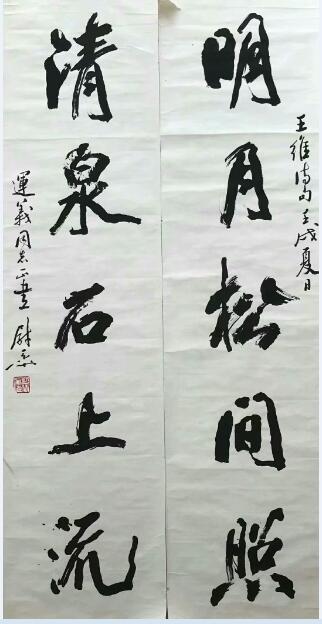 明月松间照
王维诗句 壬戌夏日
清泉石上流
運義同志正書 尉